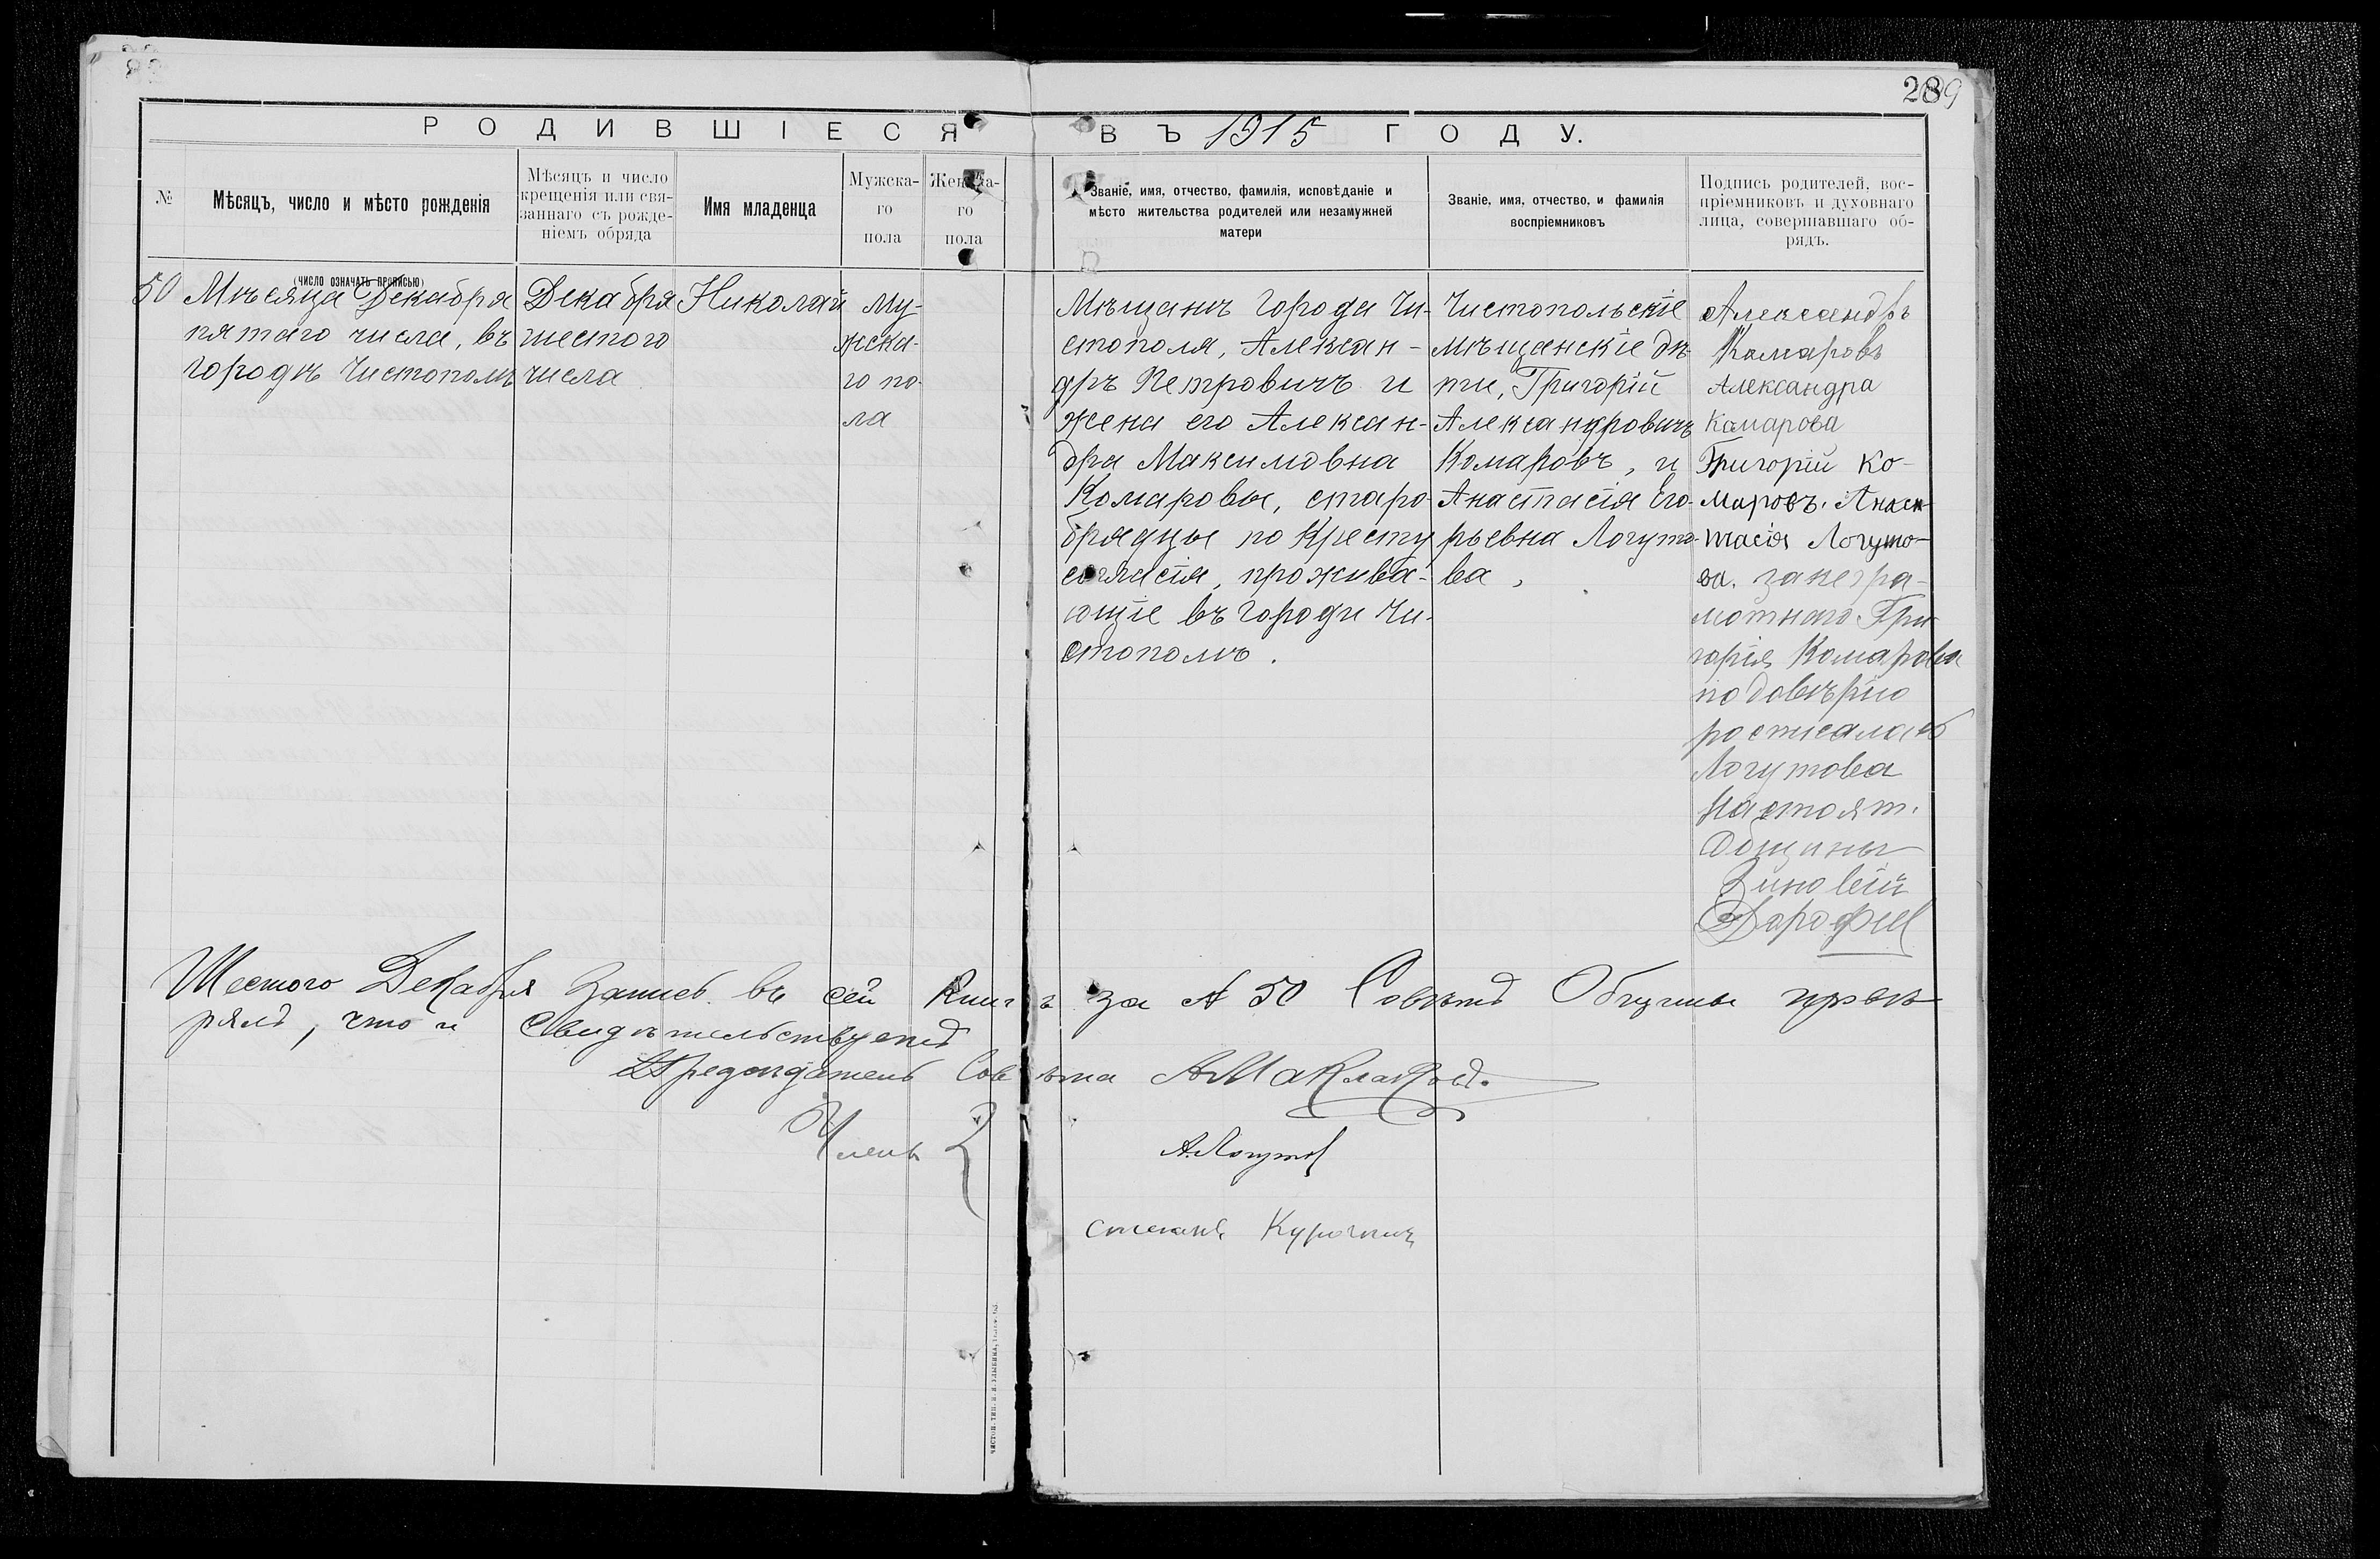 289
РОДИВШІЕСЯ ВЪ 1915 ГОДУ.
№
Мѣсяцъ, число и мѣсто рожденія
(число означать прописью)
Мѣсяцъ и число
крещенія или свя-
заннаго съ рожде-
ніемъ обряда
Имя младенца
Мужска-
го
пола
Женска-
го
пола
Званіе, имя, отчество, фамилія, исповѣданіе и
мѣсто жительства родителей или незамужней
матери
Званіе, имя, отчество, и фамилія
воспріемниковъ
Подпись родителей, вос-
пріемниковъ и духовнаго
лица, совершавшаго об-
рядъ.
50
Мѣсяца Декабря
пятаго числа, въ
городѣ Чистополѣ
Декабря
шестого
числа
Николай
му-
жска-
го по-
ла
Мѣщанъ города Чи-
стополя, Алексан-
дръ Петровичъ и
жена его Алексан-
дра Максимовна
Комаровы, старо-
брядцы по Кресту
согласія, прожива-
ющіе въ городѣ Чи-
стополѣ.
Чистопольскіе
мѣщанскіе дѣ-
ти, Григорій
Александровичъ
Комаровъ, и
Анастасія Его-
рьевна Логуто-
ва,
Александръ
Камаровъ
Александра
Камарова
Григорій Ко-
маровъ. Анас-
тасія Логуто-
ва. за негра-
мотнаго Гри-
горія Комарова
по довѣрію
росписалась
Логутова
Настоят.
Общины
Зиновій
Дарофѣ
Шестого Декабря запись въ сей Книгѣ за № 50 Совѣтъ Общины провѣ-
рялъ, что и Свидѣтельствуетъ
Предсѣдатель Совѣта АМаклаковъ.
Члены
А.Логутов
степанъ Курочкинъ
чистоп. тип.